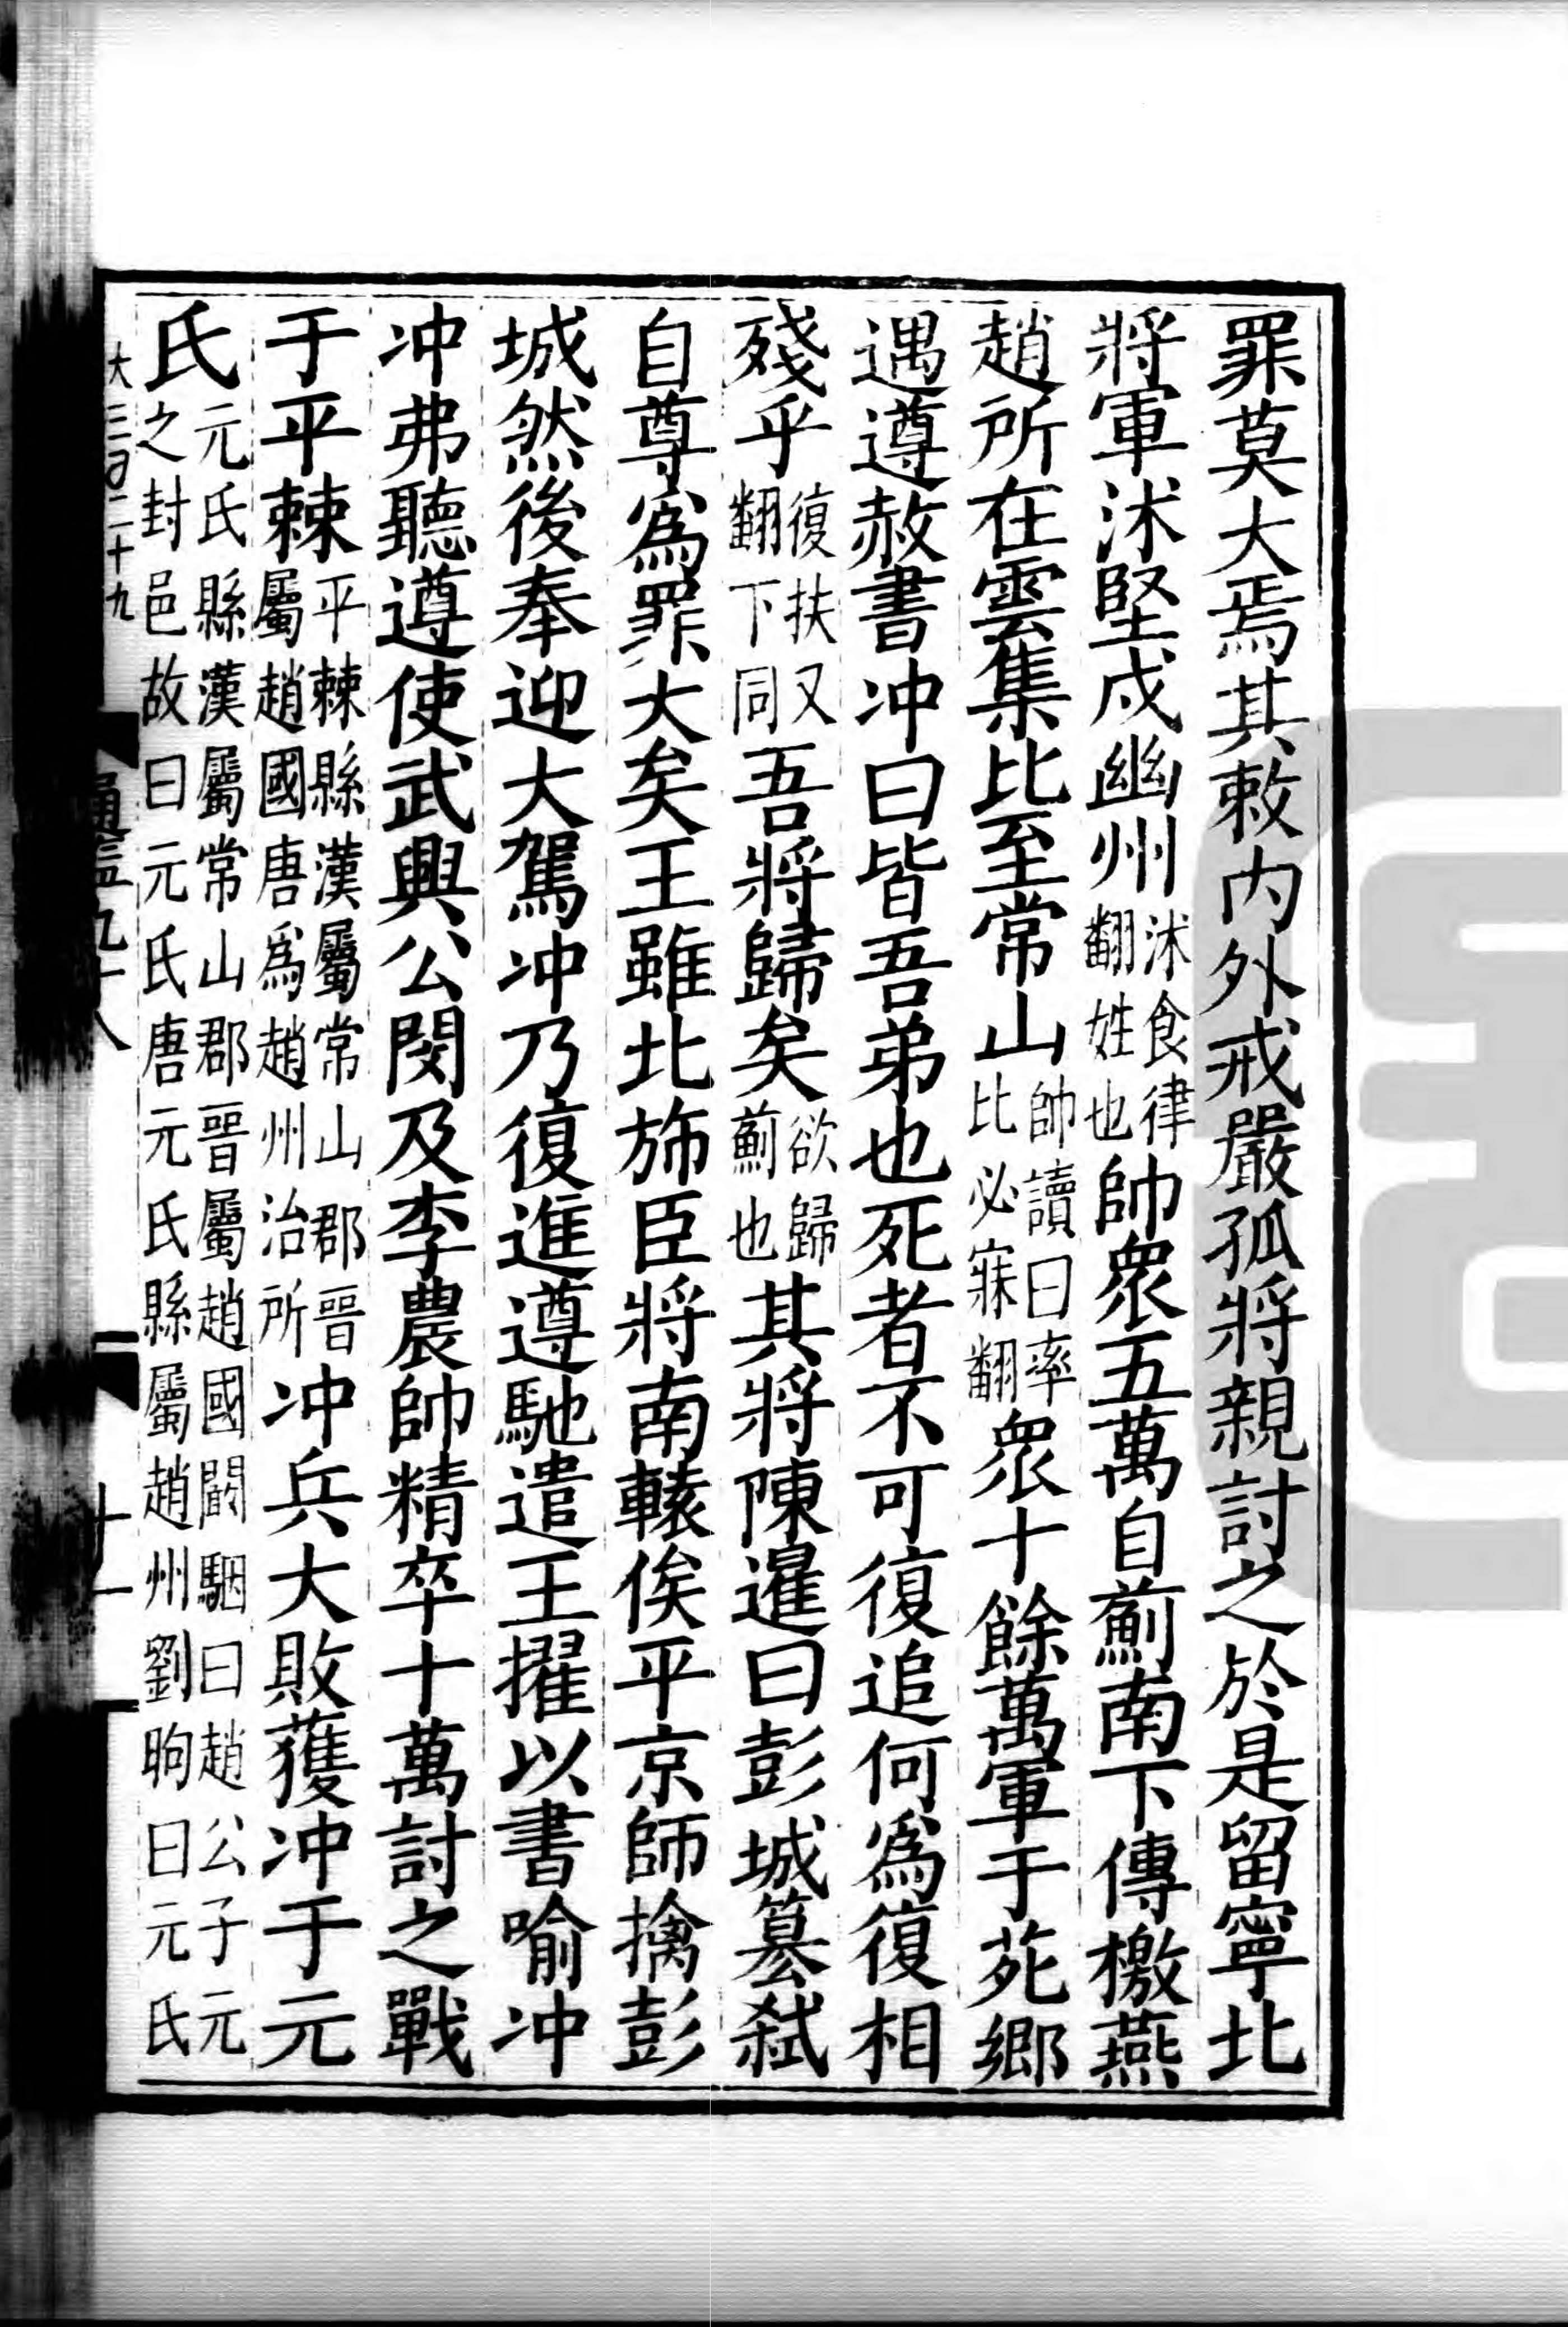 罪莫大焉其敕内外戒嚴孤將親討之於是留寧北
將軍沭堅戍幽州沭食律翻姓也帥衆五萬自薊南下傳檄燕
趙所在雲集比至常山帥讀曰率比必寐翻衆十餘萬軍于苑鄉
遇遵赦書冲曰皆吾弟也死者不可復追何爲復相
殘乎復扶又翻下同吾將歸矣欲歸薊也其將陳暹曰彭城簒弑
自尊爲罪大矣王雖北斾臣將南轅俟平京師擒彭
城然後奉迎大駕冲乃復進遵馳遣王擢以書喻冲
冲弗聽遵使武興公閔及李農帥精卒十萬討之戰
于平棘平棘縣漢屬常山郡晋屬趙國唐爲趙州治所冲兵大敗獲冲于元
氏元氏縣漢屬常山郡晋屬趙國闞駰曰趙公子元之封邑故曰元氏唐元氏縣屬趙州劉昫曰元氏
大三百二十九
通鑑九十八
十一